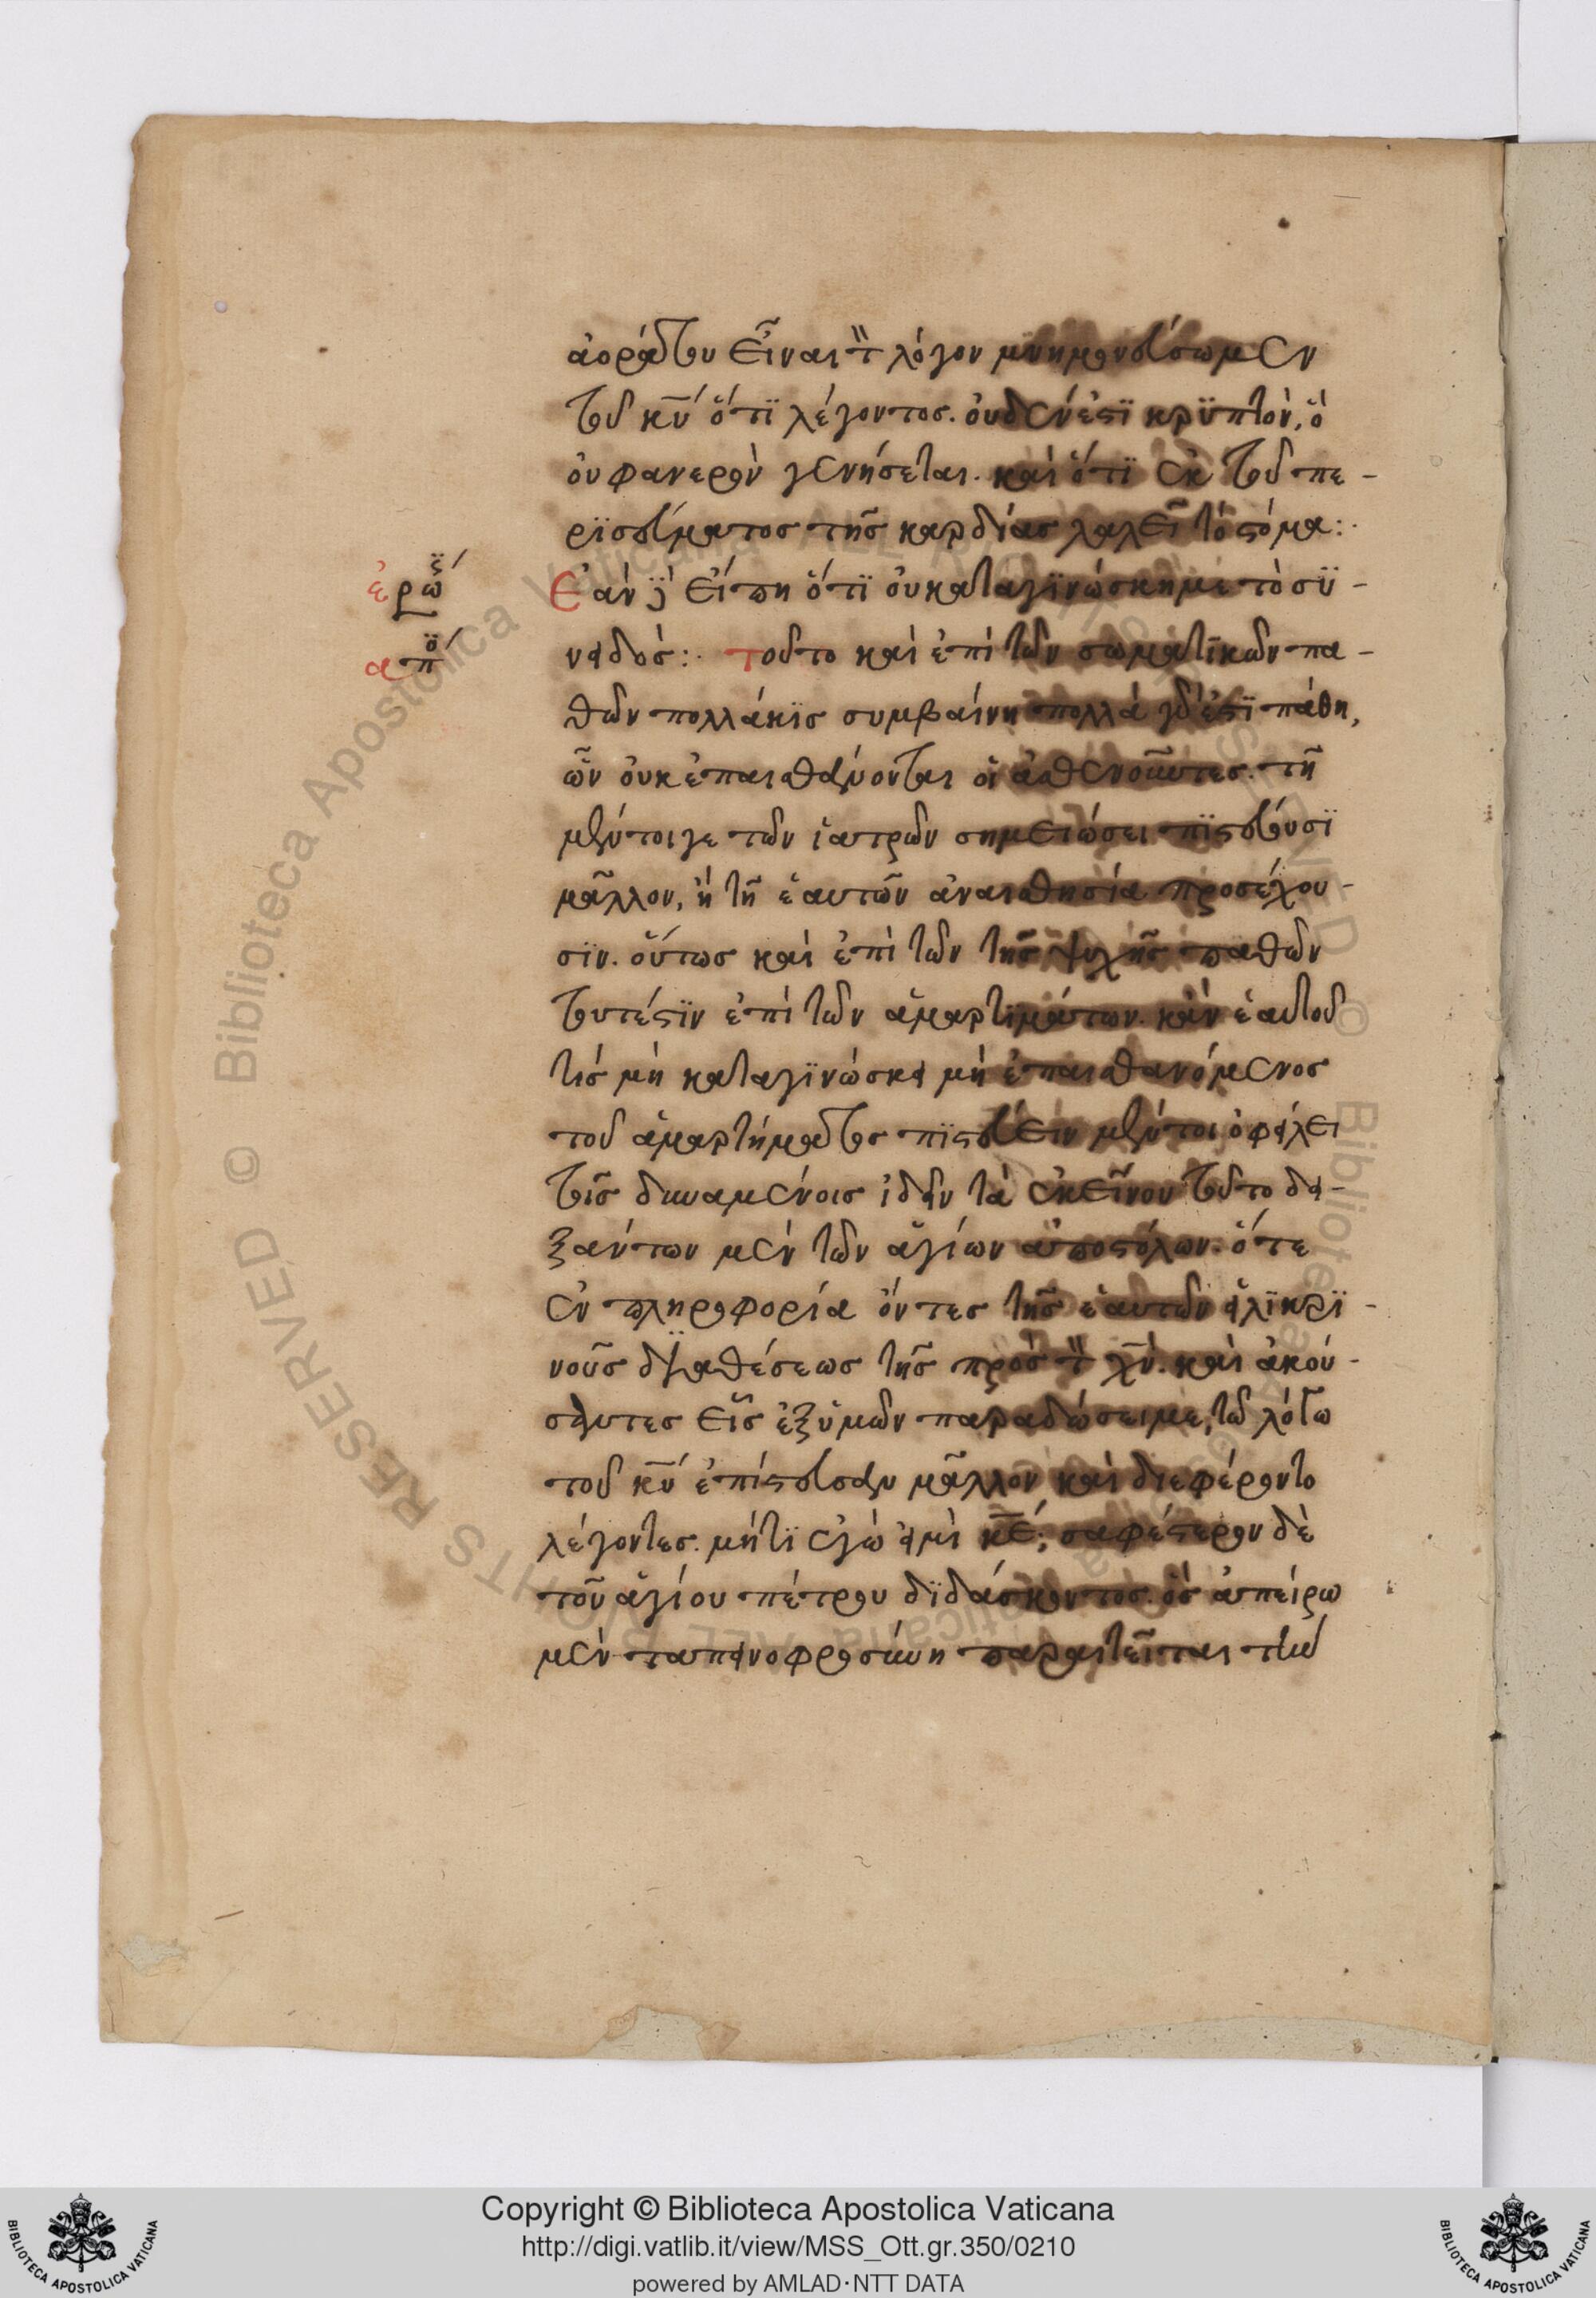 ἀοράτου εἶναι τ̀ λόγον μνημονεύσωμεν
τοῦ κυ̅ ὅτϊ λέγοντοσ. οὐδέν ἐστϊ κρϋπτὸν, ὅ
οὐ φανερὸν γενήσεται. καὶ ὅτϊ ἐκ τοῦ πε -
ρϊσεύματοσ τῆσ καρδίασ λαλεῖ τὸ στόμα:.
ἐρώ
Ἐὰν εἴπη ὅτϊ οὐ καταγϊνώσκη με τὸ σϋ -
απο
νειδόσ:. τοῦτο καὶ ἐπὶ τῶν σωματϊκῶν πα -
θῶν πολλάκϊσ συμβαίνη πολλὰ γὰρ ἐστϊ πάθη,
ὧν οὐκ ἐπαισθάνονται οἱ ἀσθενοῦντεσ. τῆ
μέντοιγε τῶν ἰατρῶν σημειώσει πϊστεύουσϊ
μᾶλλον, ἢ τῆ ἑαυτῶν ἀναισθησία προσέχου -
σϊν. οὕτωσ καὶ ἐπὶ τῶν τῆσ ψυχῆσ παθῶν
τουτέστϊν ἐπὶ τῶν ἁμαρτϊμάτων. κἂν ἑαυτοῦ
τίσ μὴ καταγϊνώσκει μὴ ἐπαισθανόμενοσ
τοῦ ἁμαρτήματοσ πϊστεύειν μέντοι ὀφείλει
τοῖσ δυναμένοισ ἰδεῖν τὰ ἐκεῖνου τοῦτο δει -
ξάντων μὲν τῶν ἁγίων ἀποστόλων. ὅτε
ἐν πληροφορία ὄντεσ τῆσ ἑαυτῶν εἰλϊκρϊ -
νοῦσ δϊαθέσεωσ τῆσ πρὸσ τ̀ χν̅. καὶ ἀκού -
σαντεσ εἷσ ἐξ ὑμῶν παραδώσει με, τῶ λόγω
τοῦ κυ̅ ἐπίστευσαν μᾶλλον καὶ διεφέροντο
λέγοντεσ. μήτϊ ἐγὼ εἰμὶ κε̅; σαφέστερον δὲ
τοῦ ἁγίου πέτρου δϊδάσκοντοσ. ὃσ ἀπείρω
μὲν ταπεινοφροσύνη παραιτεῖται τὴν
Copyright © Biblioteca Apostolica Vaticana
http://digi.vatlib.it/view/MSS_Ott.gr.350/0210
powered by AMLAD·NTT DATA